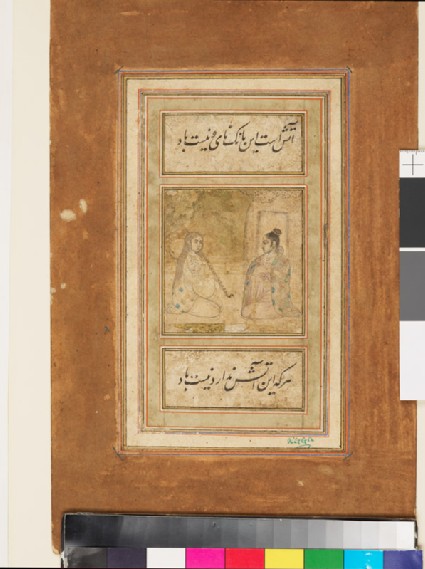 آتش است این بانگ نای و نیست باد
هر که این آتش ندارد نیست باد